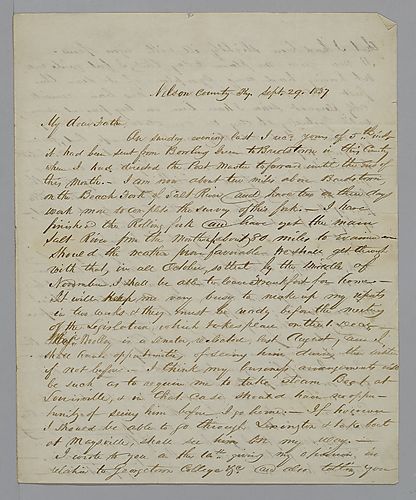 Nelson County Ky. Sept. 29. 1837
My dear Father
On Sunday evening last I recd yours of 5th Inst
it had been sent from Bowling Green to Bardstown in this County
when I had directed the Post Master to forward until the end of
this Month. — I am now about two miles above Bardstown
on the Beach Fork of Salt River, and have two or three days
work more to complete the survey of this fork. — I have
finished the Rolling fork and have yet the main
Salt River from the Mouth up about 80 miles to examine —
Should the weather prove favourable we shall get through
with that, in all October, so that by the Middle of
November I shall be able to leave for home —
It will keep me very busy to make up my reports
in two weeks & they must be ready before the meeting
of the Legislature, which takes place on the 1 Decr
Majr. is a Senator, elected last August, and I
shall have opportunity of seeing him during the winter
if not before. — I think my business arrangements will
be such as to require me to take Steam Boat at
Louisville, & in that case should have no oppor-
tunity of seeing him before I go home. — If however
I should be able to go through Lexington & take boat
at Maysville, shall see him on my way. —
I wrote to you on the 14th giving my opinion, in
relation to Georgetown College &c. and also telling you